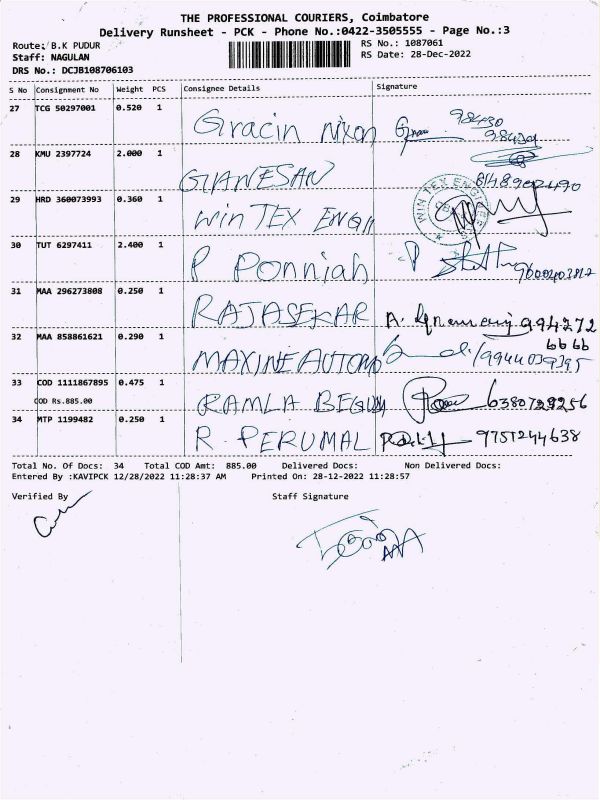 THE PROFESSIONAL COURIERS, Coimbatore
Delivery Runsheet - PCK - Phone No.:0422-3505555 - Page No.:3
Route: B.K PUDUR
RS No.: 1087061
Staff: NAGULAN
RS Date: 28-Dec-2022
DRS No.: DCJB108706103
S No Consignment No Weight PCS Consignee Details Signature
27 TCG 50297001 0.520 1 Gracin Nixon 98430
98421
28 KMU 2397724 2.000 1 GIANESAN 8148902490
29 HRD 360073993 0.360 1 WIN TEX ENGII WIN TEX ENGINEERS
30 TUT 6297411 2.400 1 P Ponniah P
31 MAA 296273808 0.250 1 RAJASEKAR A. 994272
6666
32 MAA 858861621 0.290 1 MAXINE AUTOMO 9944039395
33 COD 1111867895 0.475 1 RAMLA BEGUM 6380729256
COD Rs.885.00
34 MTP 1199482 0.250 1 R. PERUMAL 9751244638
Total No. Of Docs: 34 Total COD Amt: 885.00 Delivered Docs: Non Delivered Docs:
Entered By :KAVIPCK 12/28/2022 11:28:37 AM Printed On: 28-12-2022 11:28:57
Verified By Staff Signature